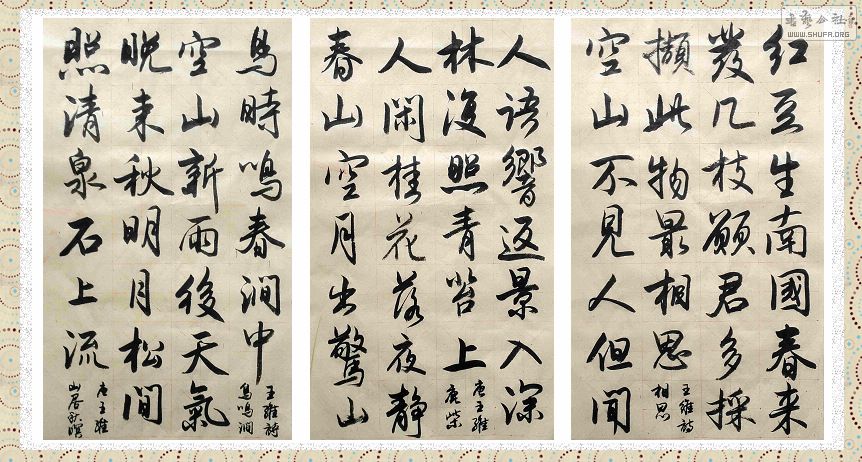 红豆生南國春来
發几枝願君多採
擷此物最相思
王維詩
相思
空山不見人但聞
人語響返景入深
林復照青苔上
唐王維
鹿柴
人閑桂花落夜靜
春山空月出驚山
鳥時鳴春澗中
王維詩
鳥鳴澗
空山新雨後天氣
晚来秋明月松間
照清泉石上流
唐王維
山居秋暝
WWW.SHUFA.ORG